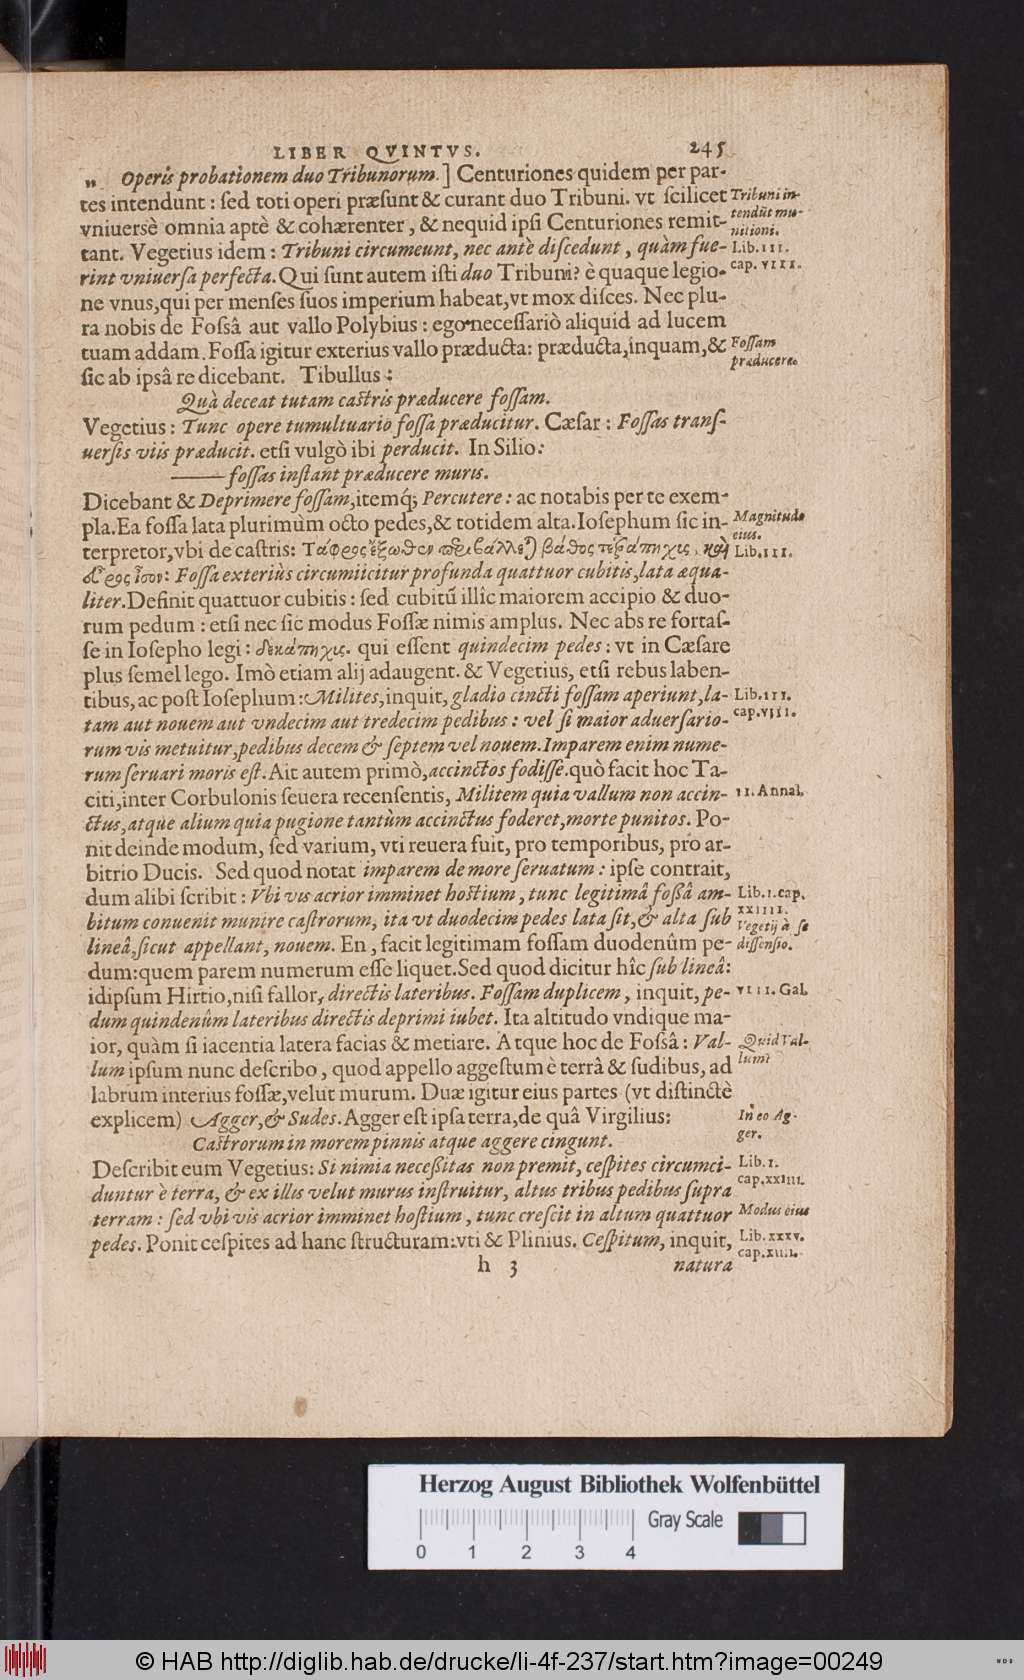 LIBER QVINTVS. 245
„ Operis probationem duo Tribunorum.] Centuriones quidem per par-
tes intendunt: sed toti operi præsunt & curant duo Tribuni. vt scilicet
vniuersè omnia aptè & cohærenter, & nequid ipsi Centuriones remit-
tant. Vegetius idem: Tribuni circumeunt, nec antè discedunt, quàm fue-
rint vniuersa perfecta. Qui sunt autem isti duo Tribuni? è quaque legio-
ne vnus, qui per menses suos imperium habeat, vt mox disces. Nec plu-
ra nobis de Fossâ aut vallo Polybius: ego necessariò aliquid ad lucem
tuam addam. Fossa igitur exterius vallo præducta: præducta, inquam, &
sic ab ipsâ re dicebant. Tibullus:
Quà deceat tutam castris præducere fossam.
Vegetius: Tunc opere tumultuario fossa præducitur. Cæsar: Fossas transf-
uersis viis præducit. etsi vulgò ibi perducit. In Silio:
—— fossas instant præducere muris.
Dicebant & Deprimere fossam, itemq́; Percutere: ac notabis per te exem-
pla. Ea fossa lata plurimùm octo pedes, & totidem alta. Iosephum sic in-
terpretor, vbi de castris: Τάφρος ἔξωθεν περιβάλλεται βάθος τετράπηχις, καὶ
εὖρος ἶσον: Fossa exteriùs circumiicitur profunda quattuor cubitis, lata æqua-
liter. Definit quattuor cubitis: sed cubitū illîc maiorem accipio & duo-
rum pedum: etsi nec sic modus Fossæ nimis amplus. Nec abs re fortas-
se in Iosepho legi: δεκάπηχις. qui essent quindecim pedes: vt in Cæsare
plus semel lego. Imò etiam alij adaugent. & Vegetius, etsi rebus laben-
tibus, ac post Iosephum: Milites, inquit, gladio cincti fossam aperiunt, la-
tam aut nouem aut vndecim aut tredecim pedibus: vel si maior aduersario-
rum vis metuitur, pedibus decem & septem vel nouem. Imparem enim nume-
rum seruari moris est. Ait autem primò, accinctos fodisse. quò facit hoc Ta-
citi, inter Corbulonis seuera recensentis, Militem quia vallum non accin-
ctus, atque alium quia pugione tantùm accinctus foderet, morte punitos. Po-
nit deinde modum, sed varium, vti reuera fuit, pro temporibus, pro ar-
bitrio Ducis. Sed quod notat imparem de more seruatum: ipse contrait,
dum alibi scribit: Vbi vis acrior imminet hostium, tunc legitimâ fossâ am-
bitum conuenit munire castrorum, ita vt duodecim pedes lata sit, & alta sub
lineâ, sicut appellant, nouem. En, facit legitimam fossam duodenûm pe-
dum: quem parem numerum esse liquet. Sed quod dicitur hîc sub lineâ:
idipsum Hirtio, nisi fallor, directis lateribus. Fossam duplicem, inquit, pe-
dum quindenûm lateribus directis deprimi iubet. Ita altitudo vndique ma-
ior, quàm si iacentia latera facias & metiare. Atque hoc de Fossâ: Val-
lum ipsum nunc describo, quod appello aggestum è terrâ & sudibus, ad
labrum interius fossæ, velut murum. Duæ igitur eius partes (vt distinctè
explicem) Agger, & Sudes. Agger est ipsa terra, de quâ Virgilius:
Castrorum in morem pinnis atque aggere cingunt.
Describit eum Vegetius: Si nimia necessitas non premit, cespites circumci-
duntur è terra, & ex illis velut murus instruitur, altus tribus pedibus supra
terram: sed vbi vis acrior imminet hostium, tunc crescit in altum quattuor
pedes. Ponit cespites ad hanc structuram: vti & Plinius. Cespitum, inquit,
h 3 natura
Tribuni in-
tendūt mu-
nitioni.
Lib. III.
cap. VIII.
Fossam
præducere.
Magnitudo
eius.
Lib. III.
Lib. III.
cap. VIII.
11. Annal.
Lib. I. cap.
XXIIII.
Vegetij à se
dissensio.
VIII. Gal.
Quid Val-
lum?
In eo Ag-
ger.
Lib. I.
cap. XXIIII.
Modus eius
Lib. XXXV.
cap. XIIII.
Herzog August Bibliothek Wolfenbüttel
Gray Scale
0 1 2 3 4
© HAB http://diglib.hab.de/drucke/li-4f-237/start.htm?image=00249